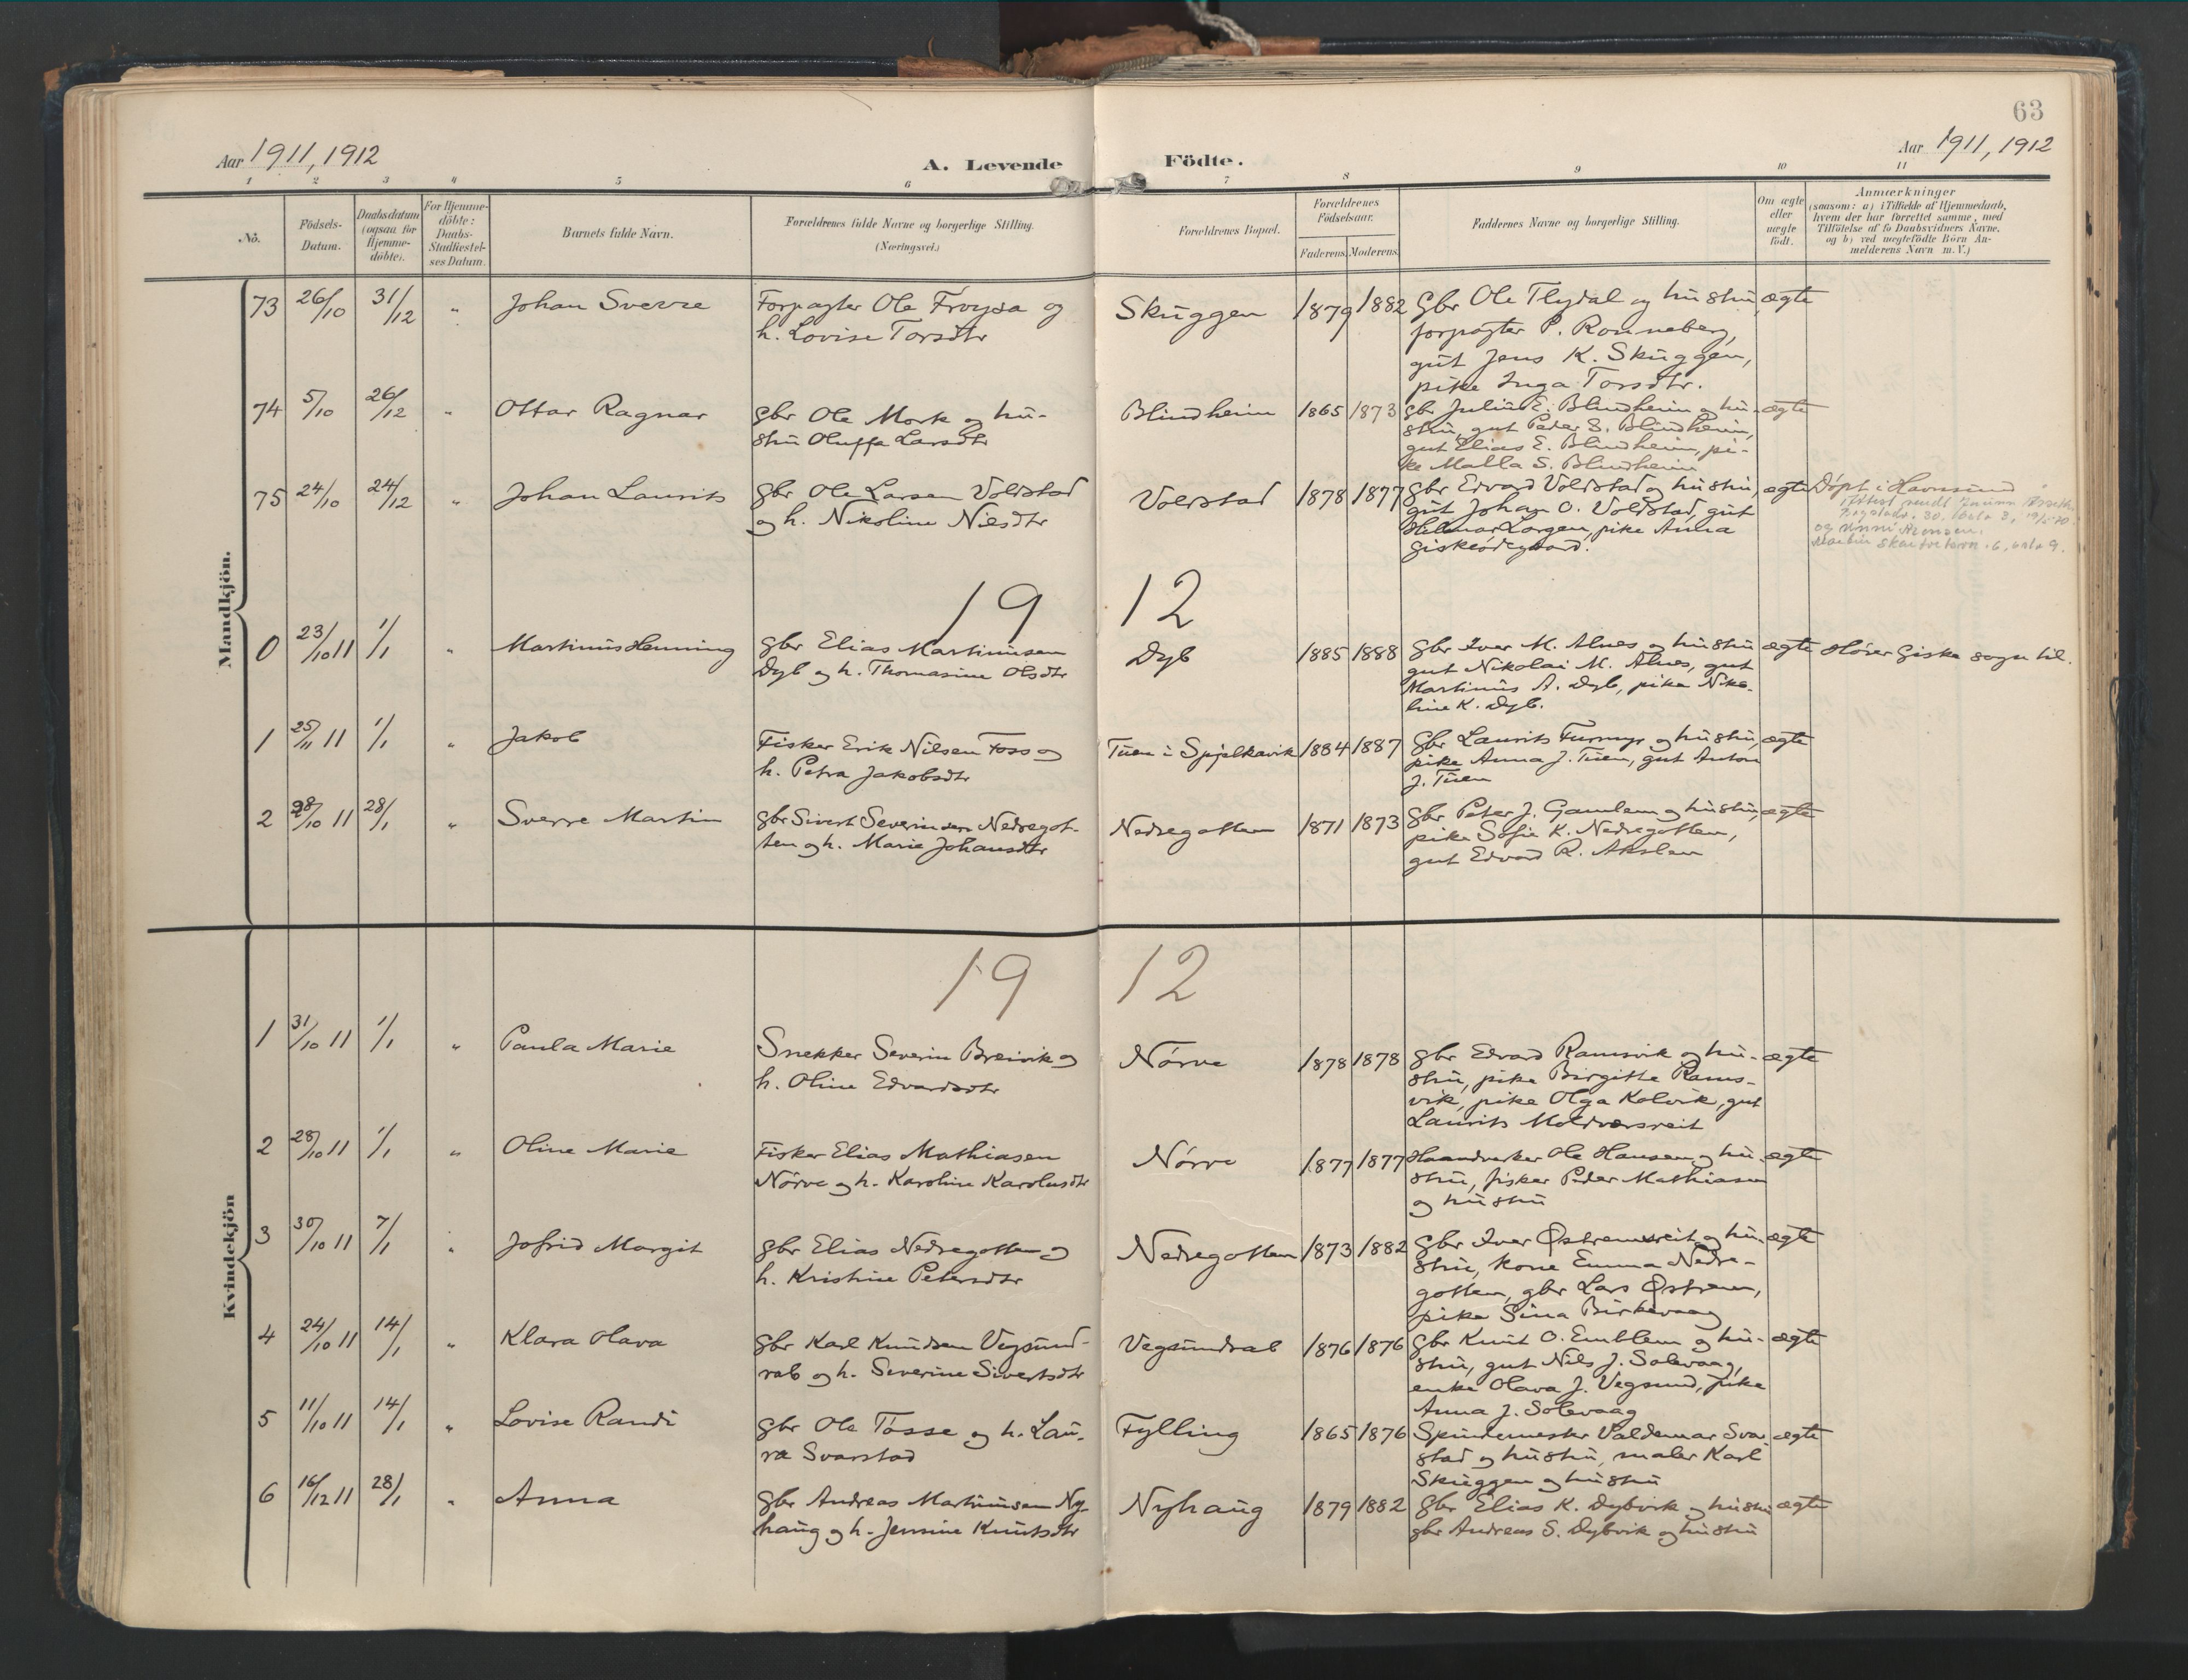 63
Aar 1911, 1912
A. Levende Födte.
Aar 1911, 1912
1 2 3 4 5 6 7 8 9 10 11
No.
Födsels-
Datum.
Daabsdatum
(ogsaa for
Hjemme-
döbte).
For Hjemme-
döbte:
Daabs-
Stadfæstel-
ses Datum.
Barnets fulde Navn.
Forældrenes fulde Navne og borgerlige Stilling.
(Næringsvei.)
Forældrenes Bopæl.
Forældrenes
Födselsaar.
Faderens. Moderens.
Faddernes Navne og borgerlige Stilling.
Om ægte
eller
uægte
födt.
Anmærkninger
(saasom: a) i Tilfælde af Hjemmedaab,
hvem der har forrettet samme, med
Tilföielse af to Daabsvidners Navne,
og b) ved uægtefödte Börn An-
melderens Navn m. V.)
Mandkjön.
73 26/10 31/12 " Johan Sverre Forpagter Ole Frøysa og Skuggen 1879 1882 Gbr Ole Flydal og hustru, ægte
h. Lovise Torsdtr forpagter P. Ronneberg,
gut Jens K. Skuggen,
pike Inga Torsdtr.
74 5/10 26/12 " Ottar Ragnar Gbr Ole Mork og hu- Blindheim 1865 1873 Gbr Julius E. Blindheim og hu- ægte
stru Oluffa Larsdtr stru, gut Peder S. Blindheim,
gut Elias E. Blindheim, pi-
ke Malla S. Blindheim
75 24/10 24/12 " Johan Laurits Gbr Ole Larsen Voldstad Voldstad 1878 1877 Gbr Edvard Voldstad og hustru, ægte Døpt i Havnsund
og h. Nikoline Nilsdtr gut Johan O. Voldstad, gut
Hilmar Longen, pike Anna
Giskeødegaard.
19 12
0 23/10 11 1/1 " Martinus Henning Gbr Elias Martinusen Dyb 1885 1888 Gbr Iver M. Alnes og hustru ægte Hører Giske sogn til.
Dyb og h. Thomasine Olsdtr gut Nikolai M. Alnes, gut
Martinus A. Dyb, pike Niko-
line K. Dyb.
1 25/11 11 1/1 " Jakob Fisker Erik Nilsen Foss og Tuen i Spjelkavik 1884 1887 Gbr Laurits Furmyr og hustru, ægte
h. Petra Jakobsdtr pike Anna J. Tuen, gut Anton
J. Tuen
2 28/10 11 28/1 " Sverre Martin Gbr Sivert Severinsen Nedregot- Nedregotten 1871 1873 Gbr Peter J. Gamlem og hustru, ægte
ten og h. Marie Johansdtr pike Sofie K. Nedregotten,
gut Edvard R. Akslen
Kvindekjön
19 12
1 31/10 11 1/1 " Paula Marie Snekker Severin Breivik og Nørve 1878 1878 Gbr Edvard Ramsvik og hu- ægte
h. Oline Edvardsdtr stru, pike Birgitte Rams-
vik, pike Olga Kolvik, gut
Laurits Moldværsreit
2 28/10 11 1/1 " Oline Marie Fisker Elias Mathiasen Nørve 1877 1877 Haandverker Ole Hansen og hu- ægte
Nørve og h. Karoline Karolusdtr stru, fisker Peder Mathiasen
og hustru
3 30/10 11 7/1 " Jofrid Margit Gbr Elias Nedregotten og Nedregotten 1873 1882 Gbr Iver Østremsreit og hu- ægte
h. Kristine Petersdtr stru, kone Emma Nedre-
gotten, gbr Lars Østrem,
pike Sina Birkevaag
4 24/10 11 14/1 " Klara Olava Gbr Karl Knudsen Vegsund- Vegsundrab 1876 1876 Gbr Knut O. Emblem og hu- ægte
rab og h. Severine Sivertsdtr stru, gut Nils J. Solevaag,
enke Olava J. Vegsund, pike
Anna J. Solevaag
5 11/10 11 14/1 " Lovise Randi Gbr Ole Tøsse og h. Lau- Fylling 1865 1876 Spindemester Valdemar Svar- ægte
ra Svarstad stad og hustru, maler Karl
Skuggen og hustru
6 16/12 11 28/1 " Anna Gbr Andreas Martinusen Ny- Nyhaug 1879 1882 Gbr Elias K. Dybvik og hustru ægte
haug og h. Jensine Knutsdtr gbr Andreas S. Dybvik og hustru